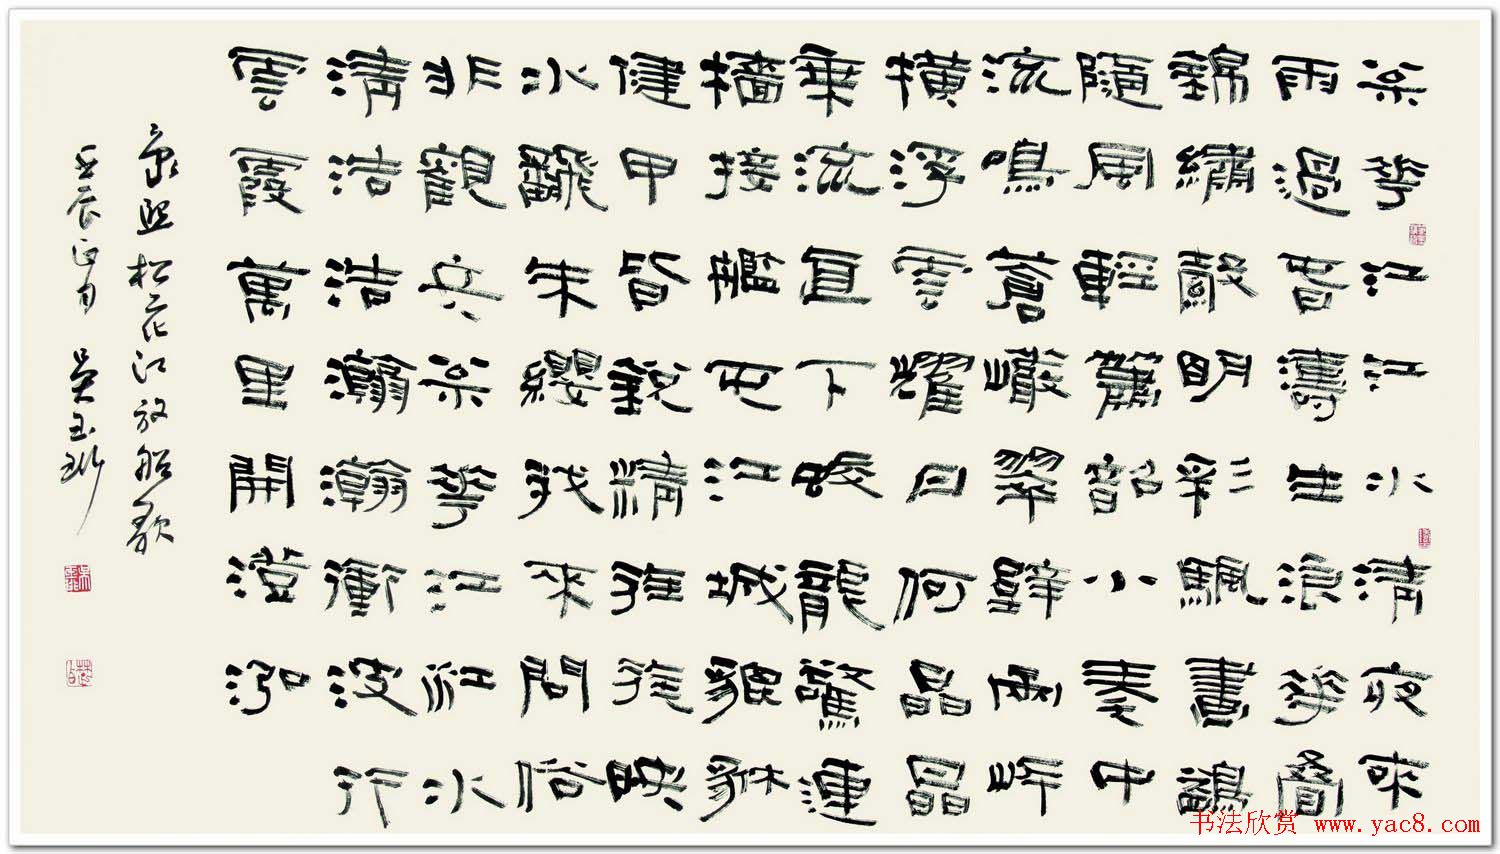 松花江江水清夜來
雨過春濤生浪花疊
錦繡縠明彩颿畫鷁
隨風輕簫韶小奏中
流鳴蒼巖翠壁兩岸
橫浮雲耀日何晶晶
乘流直下蛟龍驚連
檣接艦屯江城貔貅
健甲皆銳精旌旄映
水飜朱纓我來問俗
非觀兵松花江江水
清浩浩瀚瀚衝波行
雲霞萬里開澄泓
康熙松花江放船歌
壬辰正月 吳玉
书法欣赏 www.yac8.com